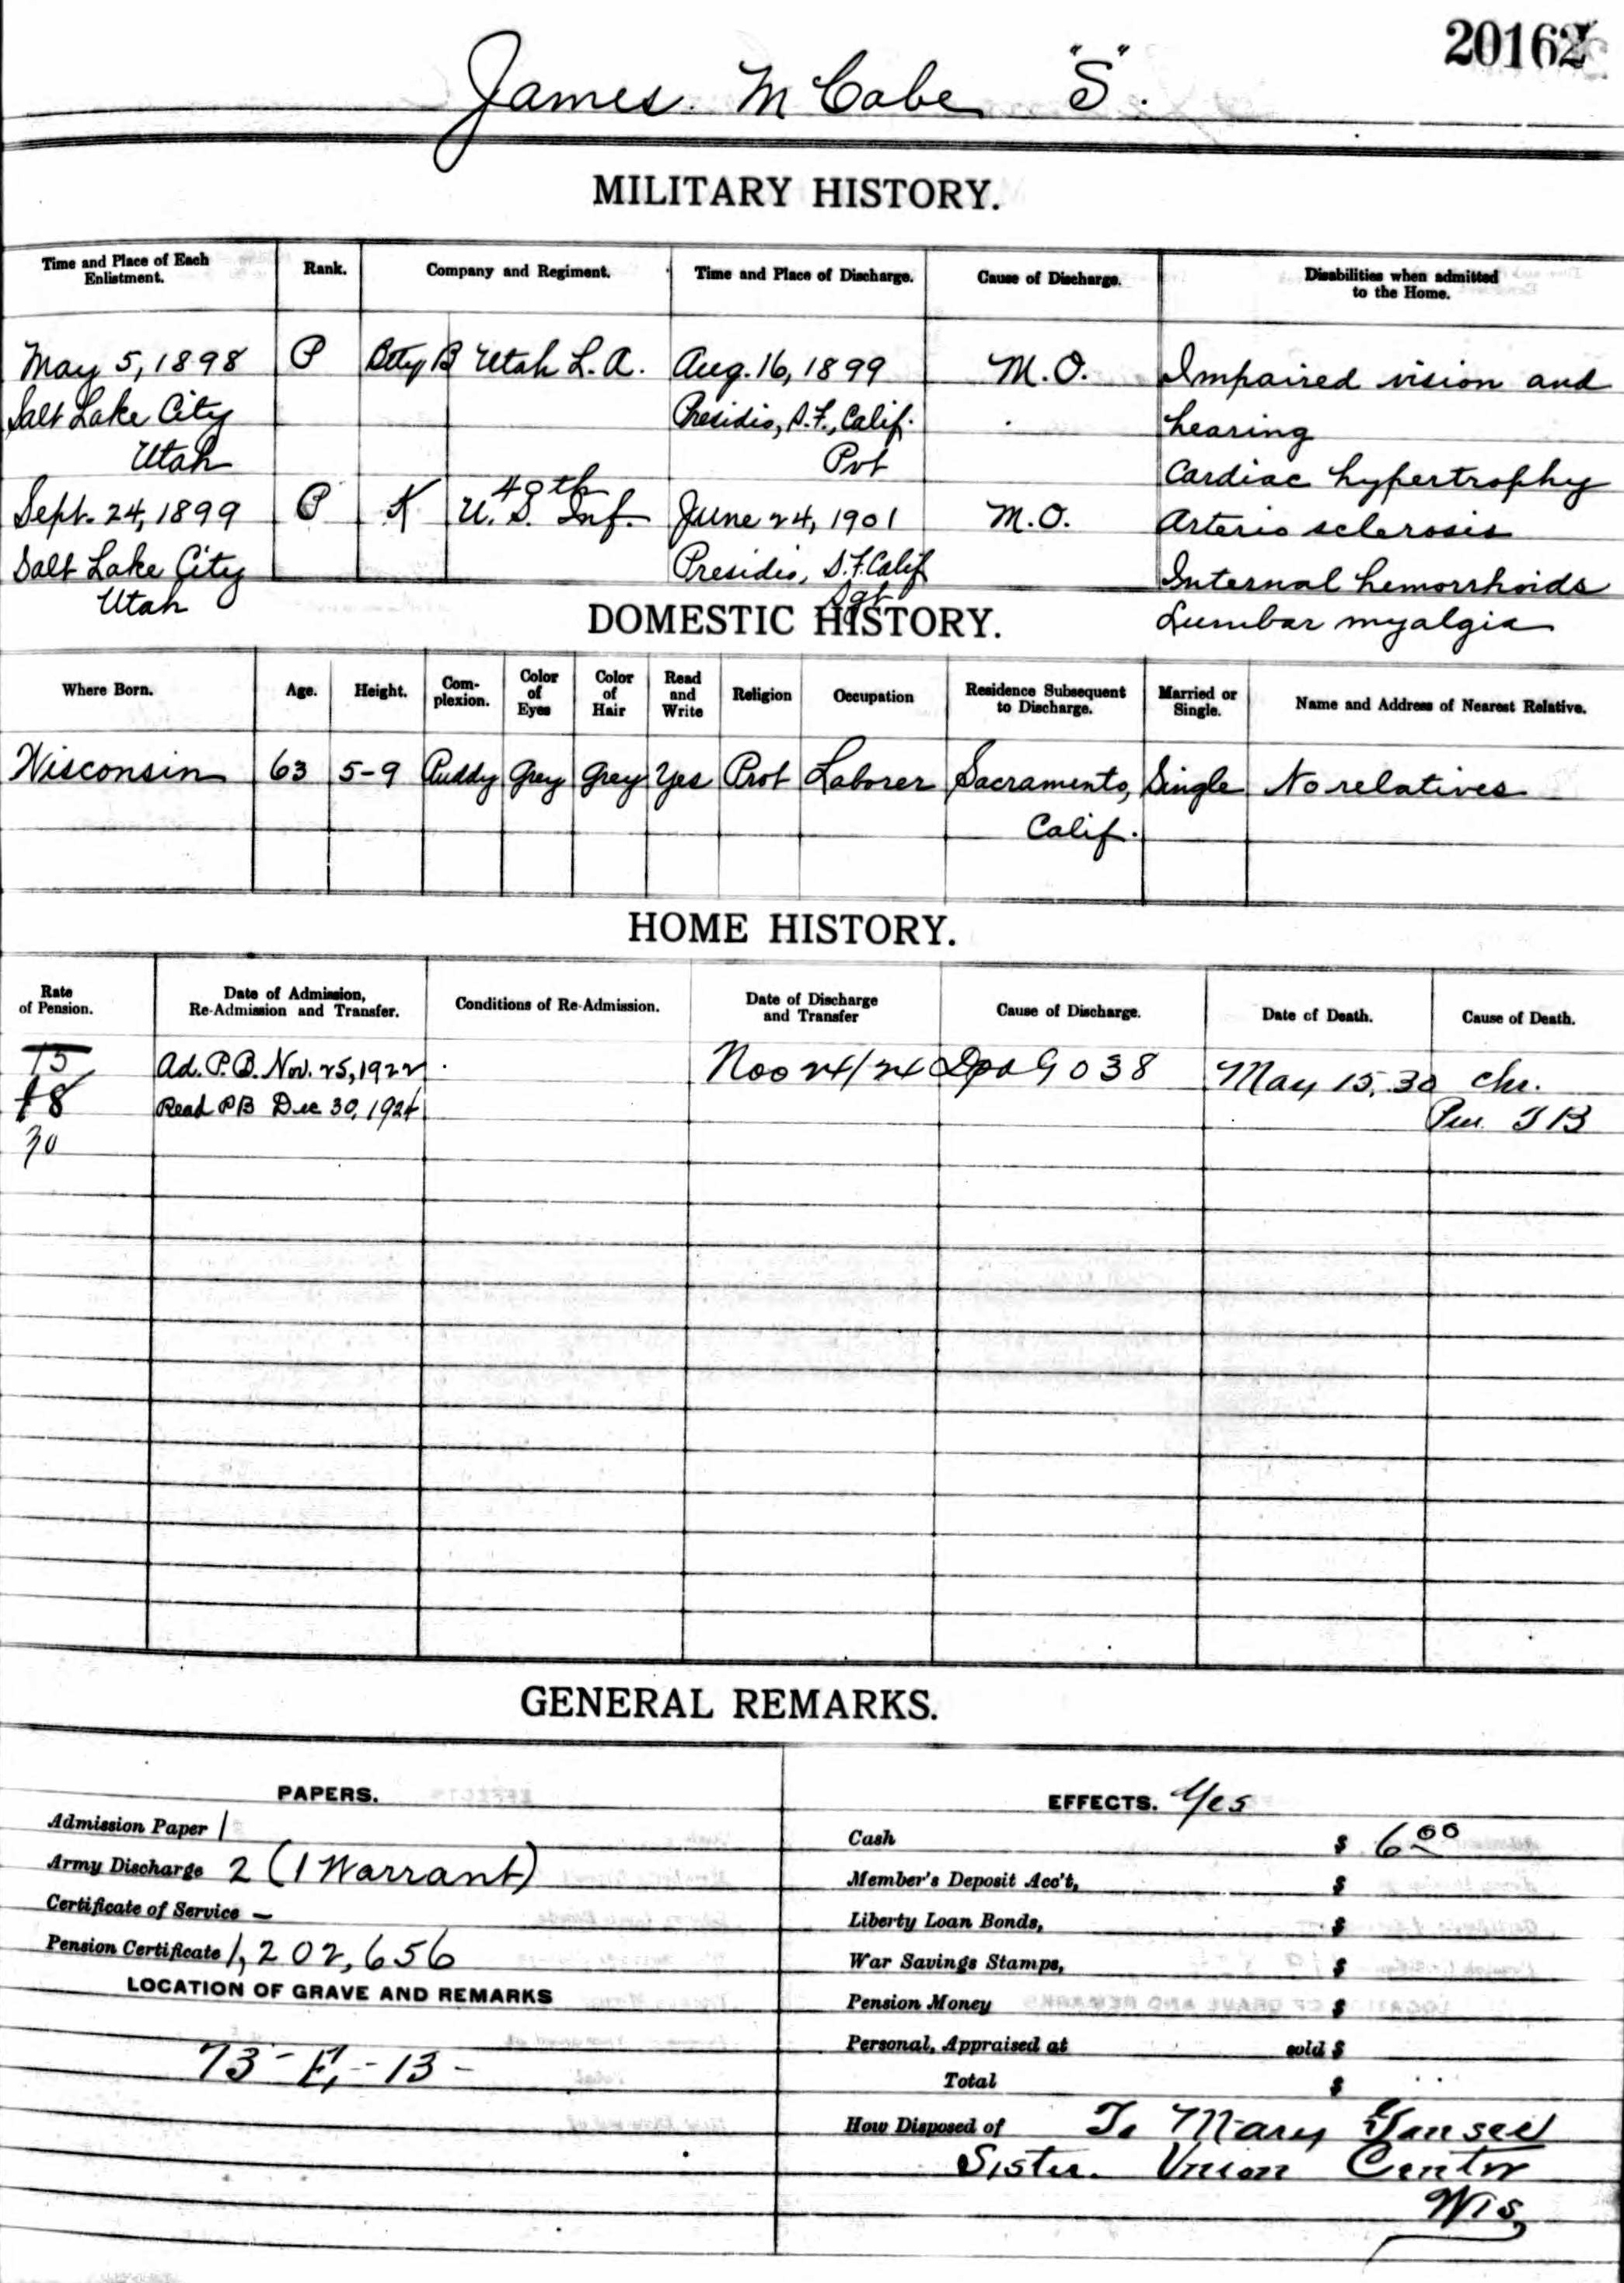 20162
James McCabe "S".
MILITARY HISTORY.
Time and Place of Each Enlistment. Rank. Company and Regiment. Time and Place of Discharge. Cause of Discharge. Disabilities when admitted to the Home.
May 5, 1898 P Btty B Utah L.A. Aug. 16, 1899 M.O. Impaired vision and
Salt Lake City Presidio, S.F., Calif. hearing
Utah Pvt Cardiac hypertrophy
Sept. 24, 1899 P K U.S. Inf. June 24, 1901 M.O. Arterio sclerosis
Salt Lake City Presidio, S.F. Calif Internal hemorrhoids
Utah Sgt Lumbar myalgia
DOMESTIC HISTORY.
Where Born. Age. Height. Com-plexion. Color of Eyes Color of Hair Read and Write Religion Occupation Residence Subsequent to Discharge. Married or Single. Name and Address of Nearest Relative.
Wisconsin 63 5-9 Ruddy Grey Grey Yes Prot Laborer Sacramento, Single No relatives
Calif.
HOME HISTORY.
Rate of Pension. Date of Admission, Re-Admission and Transfer. Conditions of Re-Admission. Date of Discharge and Transfer Cause of Discharge. Date of Death. Cause of Death.
15 Ad. P.B. Nov. 25, 1922 24/24 38 May 15, 30 Chr.
18 Read PB Dec 30, 1924 TB
30
GENERAL REMARKS.
PAPERS.
Admission Paper 1
Army Discharge 2 (1 Warrant)
Certificate of Service —
Pension Certificate 1,202,656
LOCATION OF GRAVE AND REMARKS
73-E,-13-
EFFECTS. Yes
Cash $ 6.00
Member's Deposit Acc't, $
Liberty Loan Bonds, $
War Savings Stamps, $
Pension Money $
Personal, Appraised at sold $
Total $
How Disposed of To Mary
Sister. Union Center
Wis,